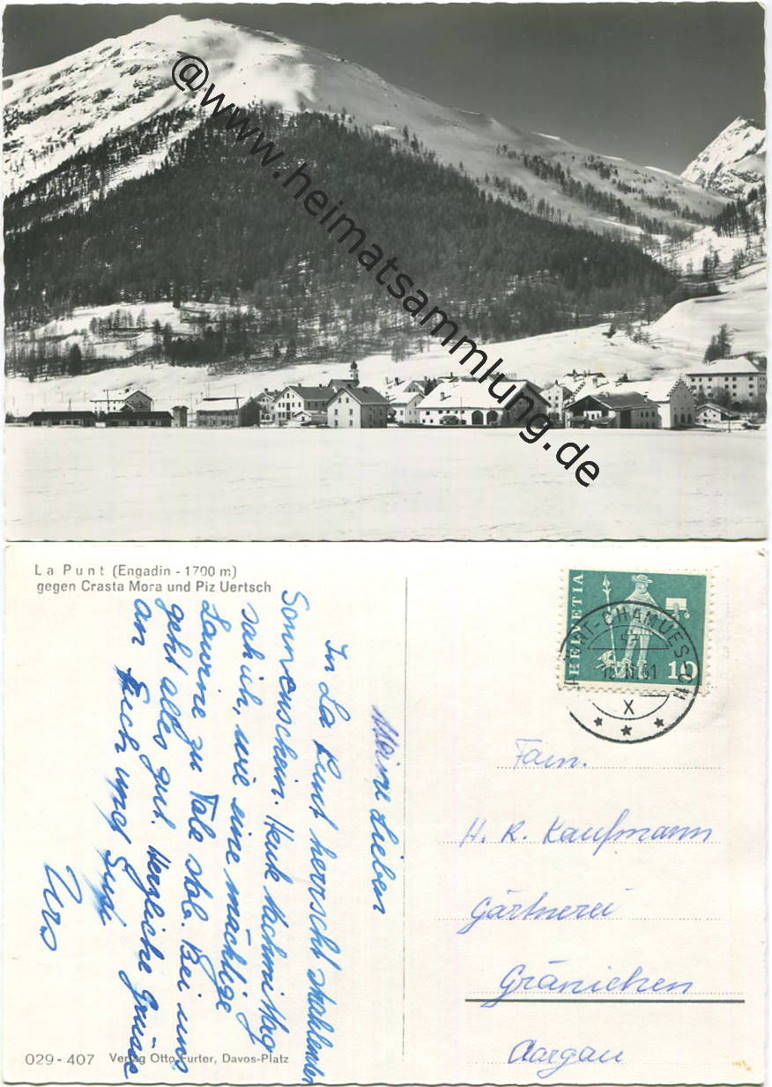 @www.heimatsammlung.de
La Punt (Engadin - 1700 m)
gegen Crasta Mora und Piz Uertsch
Meine Lieben
In La Punt herrscht strahlender
Sonnenschein. Heute Nachmittag
sah ich, wie eine mächtige
Lawine zu Tale stob. Bei uns
geht alles gut. Herzliche Grüsse
an Euch und
Urs
029-407 Verlag Otto Furter, Davos-Platz
HELVETIA
10
PUNT-CHAMUES-CH
X
Fam.
H. R. Kaufmann
Gärtnerei
Gränichen
Aargau